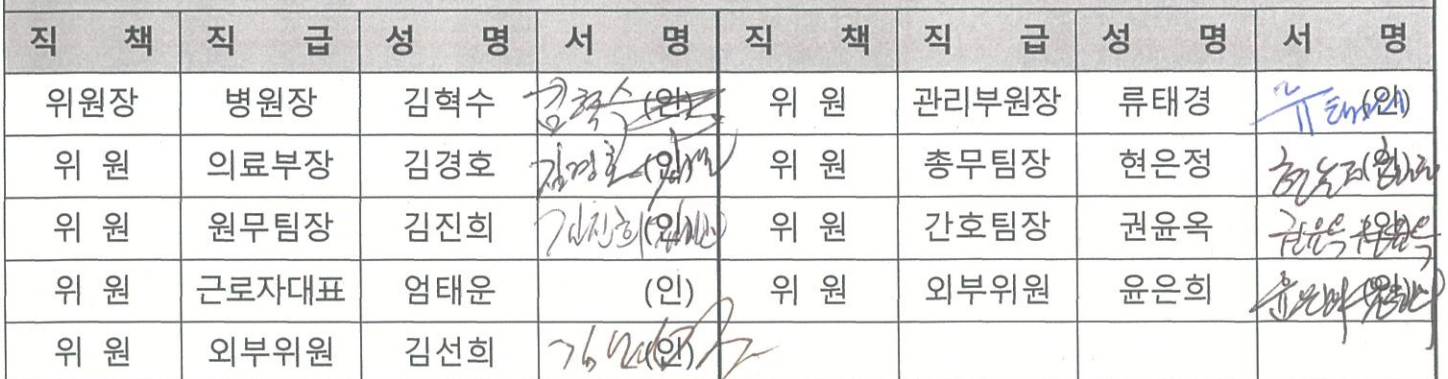 직 책 직 급 성 명 서 명 직 책 직 급 성 명 서 명
위원장 병원장 김혁수 김혁수 (인) 위 원 관리부원장 류태경 (인)
위 원 의료부장 김경호 김경호 (인) 위 원 총무팀장 현은정 (인)
위 원 원무팀장 김진희 김진희 (인) 위 원 간호팀장 권윤옥 (인)
위 원 근로자대표 엄태운 (인) 위 원 외부위원 윤은희 (인)
위 원 외부위원 김선희 (인)